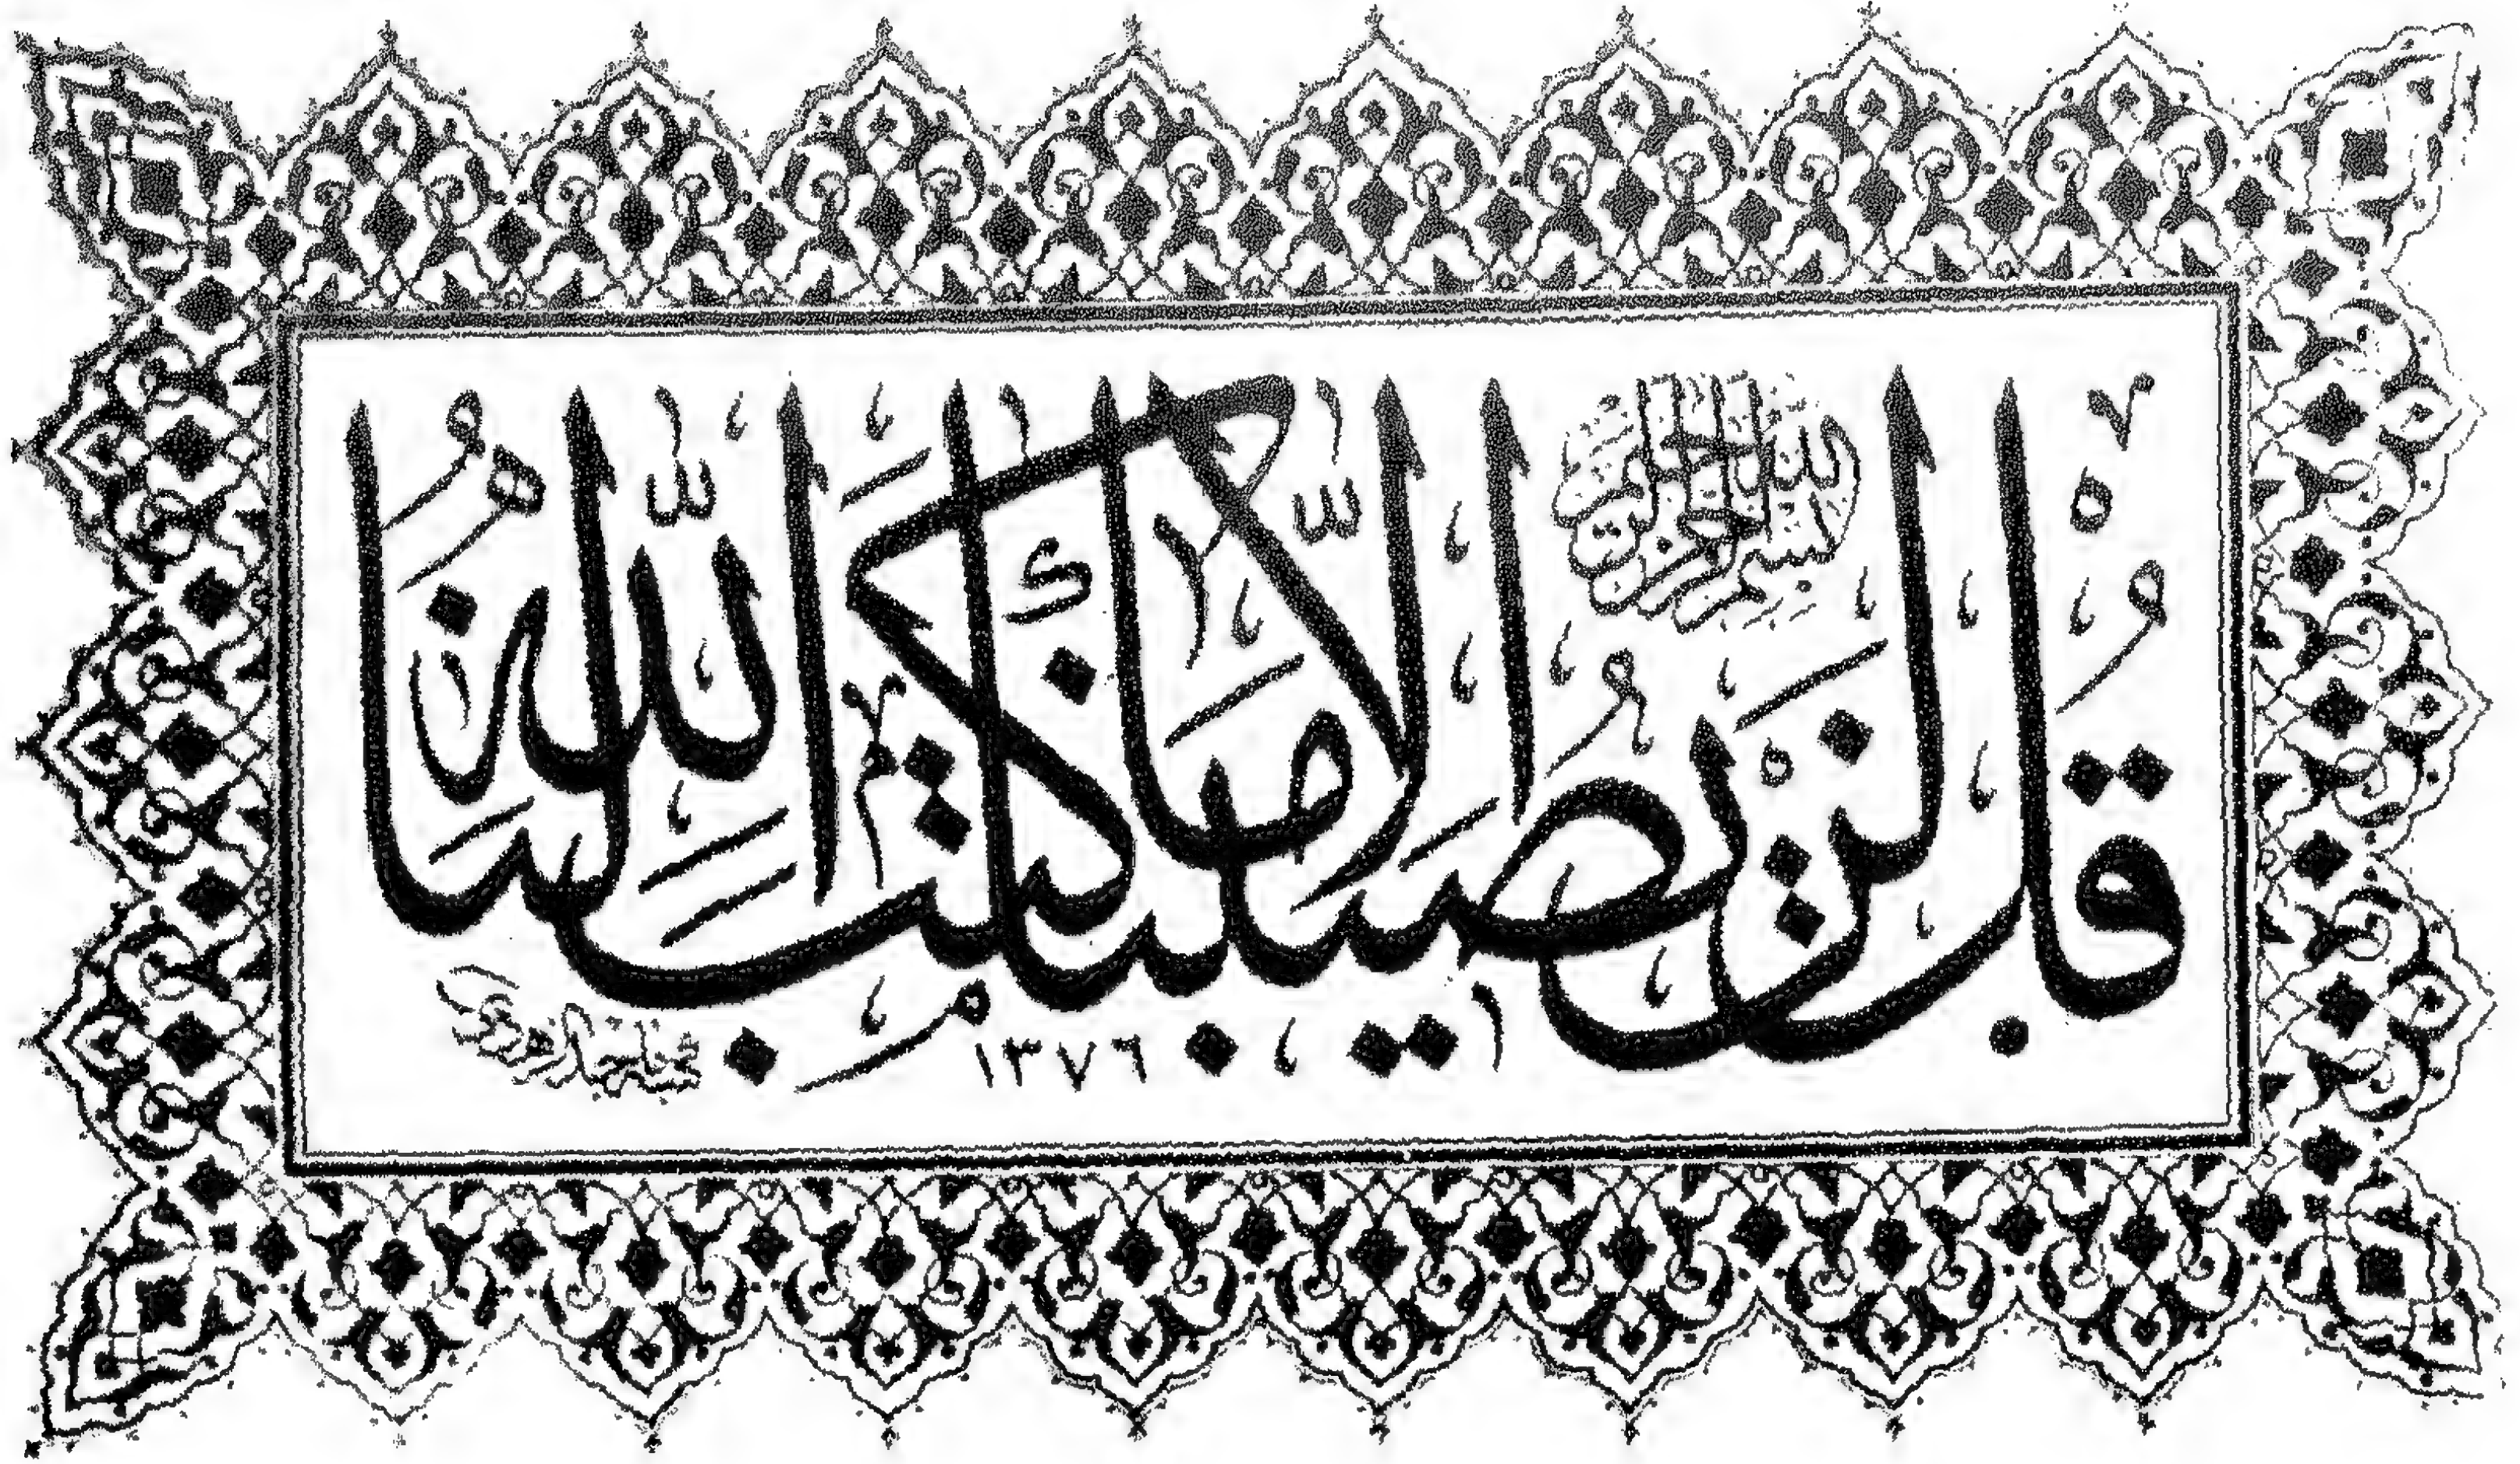 بسم الله الرحمن الرحيم
قُل لَّن يُصِيبَنَا إِلَّا مَا كَتَبَ اللَّهُ لَنَا
١٣٧٦